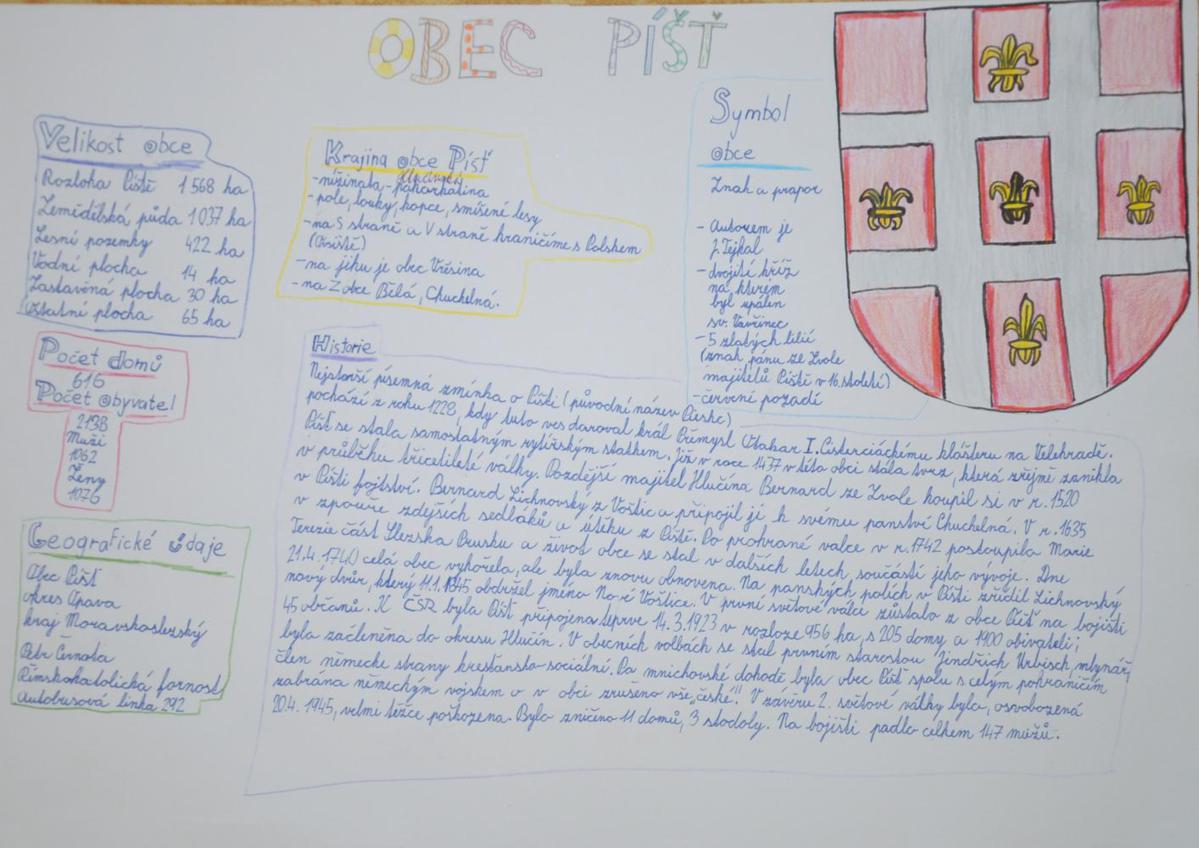 OBEC PÍŠŤ
Velikost obce
Rozloha Píště 1 568 ha
Zemědělská půda 1 037 ha
Lesní pozemky 422 ha
Vodní plocha 14 ha
Zastavěná plocha 30 ha
Ostatní plocha 65 ha
Počet domů
616
Počet obyvatel
2138
Muži
1062
Ženy
1076
Geografické údaje
Obec Píšť
okres Opava
kraj Moravskoslezský
Petr Černota
Římskokatolická farnost
Autobusová linka 292
Krajina obce Píšť
-nížinatá, -pahorkatina
-pole, louky, kopce, smíšené lesy
-na S straně a V straně hraničíme s Polskem
-na jihu je obec Vřesina
-na Z obce Bělá, Chuchelná.
Symbol
obce
Znak a prapor
- Autorem je
J. Tejkal
- dvojití kříž
na kterém
byl upálen
sv. Vavřinec
- 5 zlatých lilií
(znak pánu ze Zvole
majitelů Píště v 16. století)
- červené pozadí
Historie
Nejstarší písemná zmínka o Píšti (původní název Pieshc)
pochází z roku 1228, kdy tuto ves daroval král Přemysl Otakar I. Cisterciáckému klášteru na Velehradě.
Píšť se stala samostatným rytířským statkem. Již v roce 1437 v této obci stála tvrz, která zřejmě zanikla
v průběhu třicetileté války. Pozdější majitel Hlučína Bernard ze Zvole koupil si v r. 1520
v Píšti fojtství. Bernard Lichnovský z Voštic a připojil jé k svému panství Chuchelná. V r. 1635
v zpouře zdejších sedláků a útěku z Píště. Po prohrané valce v r. 1742 postoupila Marie
Terezie část Slezska Prusku a život obce se stal v dalších letech, součástí jeho vývoje. Dne
21.4. 1740 celá obec vyhořela, ale byla znovu obnovena. Na panských polích v Píšti zřídil Lichnovský
nový dvůr, který 11.1. 1845 obdržel jméno Nové Voštice. V první světové válci zůstalo z obce Píšť na bojišti
45 občanů. K ČSR byla Píšť připojena teprve 14. 3. 1923 v rozloze 956 ha, s 205 domy a 1900 obivateli;
byla začleněna do okresu Hlučín. V obecních volbách se stal prvním starostou Jindřich Urbisch, mlynář,
člen německe strany křesťansko-sociální. Po mnichovské dohodě byla obec Píšť spolu s celým pohraničím
zabrána německým vojskem a v obci zrušeno vše „české"!! V závěru 2. světové války byla, osvobozená
20.4. 1945, velmi těžce poškozena. Bylo zničeno 11 domů, 3 stodoly. Na bojišti padlo celkem 147 mužů.